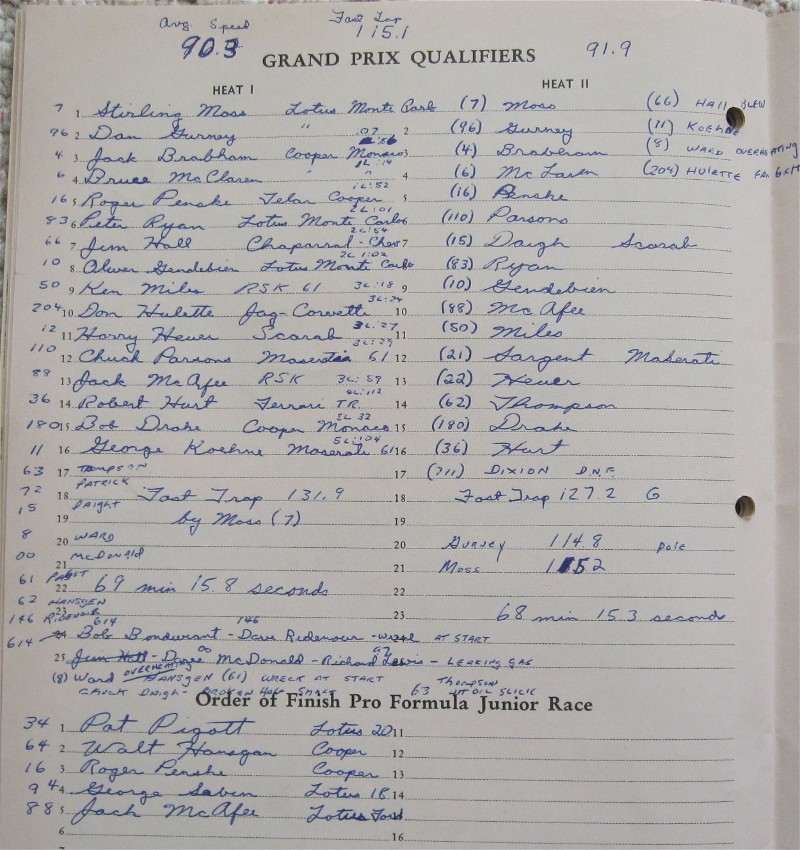 Avg. Speed Fast Lap
90.3 115.1
GRAND PRIX QUALIFIERS 91.9
HEAT I HEAT II
7 1 Stirling Moss Lotus Monte Carlo (7) Moss (66) HALL BLEW
96 2 Dan Gurney " .07 2 (96) Gurney (11) KOEHNE
4 3 Jack Brabham Cooper Monaco 3 (4) Brabham (8) WARD OVERHEATING
6 4 Bruce McClaren " 1L:14 4 (6) McLaren (204) HULETTE FAN 6SH
16 5 Roger Penske Telar Cooper 1L:52 5 (16) Penske
83 6 Peter Ryan Lotus Monte Carlo 2L:01 6 (110) Parsons
66 7 Jim Hall Chaparral - Chev 2L:54 7 (15) Daigh Scarab
10 8 Oliver Gendebien Lotus Monte Carlo 2L 1:02 (83) Ryan
50 9 Ken Miles RSK 61 3L:18 9 (10) Gendebien
204 10 Don Hulette Jag-Corvette 3L:24 10 (88) McAfee
12 11 Harry Heuer Scarab 3L:27 11 (50) Miles
110 12 Chuck Parsons Maserati 61 3L:29 12 (21) Sargent Maserati
88 13 Jack McAfee RSK 3L:59 13 (22) Heuer
36 14 Robert Hurt Ferrari TR. 4L:112 14 (62) Thompson
180 15 Bob Drake Cooper Monaco 5L 32 15 (180) Drake
11 16 George Koehne Maserati 61 5L:104 16 (36) Hurt
63 17 TOMPSON 17 (211) DIXION D.N.F.
72 PATRICK
18 Fast Trap 131.9 18 Fast Trap 127.2 G
15 DAIGHT
19 by Moss (7) 19
8 20 WARD 20 Gurney 114.8 pole
00 21 McDONALD 21 Moss 1152
61 PABST
22 69 min 15.8 seconds 22
62 HANSGEN
23 23 68 min 15.3 seconds
146 RIDENOUR 614 146
614 24 Bob Bondurant - Dave Ridenour - wreck AT START
25 Jim Hall - Dave McDonald - Richard Lewis - LEAKING GAS
(8) Ward OVERHEATING HANSGEN (61) WRECK AT START Thompson
CHUCK DAIGH - BROKEN HALF SHAFT 63 HIT OIL SLICK
Order of Finish Pro Formula Junior Race
34 1 Pat Pigott Lotus 20 11
64 2 Walt Hansgan Cooper 12
16 3 Roger Penske Cooper 13
94 4 George Sabin Lotus 18 14
88 5 Jack McAfee Lotus Ford
6 16